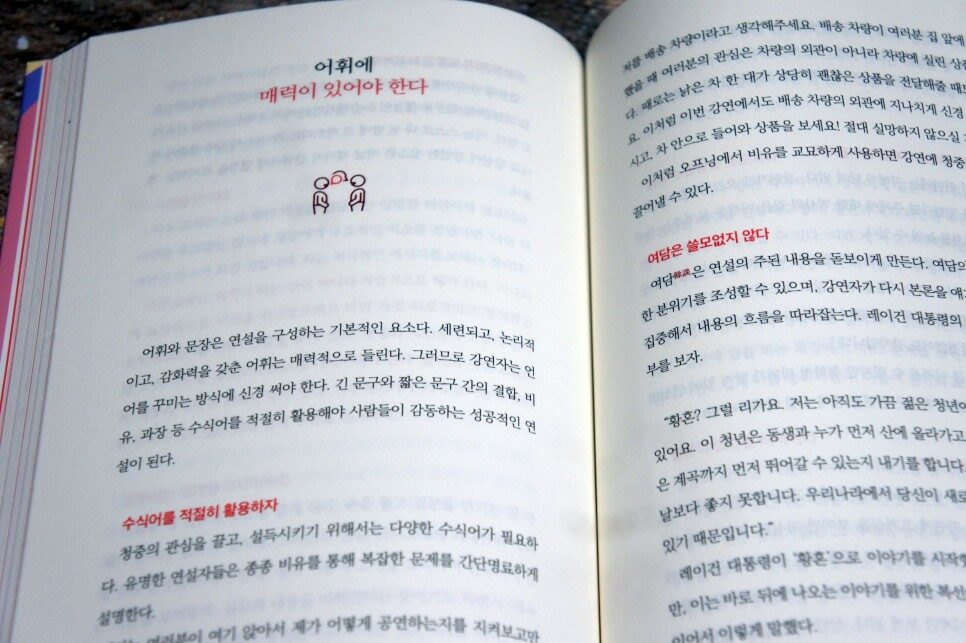 어휘에
매력이 있어야 한다
어휘와 문장은 연설을 구성하는 기본적인 요소다. 세련되고, 논리적
이고, 감화력을 갖춘 어휘는 매력적으로 들린다. 그러므로 강연자는 언
어를 꾸미는 방식에 신경 써야 한다. 긴 문구와 짧은 문구 간의 결합, 비
유, 과장 등 수식어를 적절히 활용해야 사람들이 감동하는 성공적인 연
설이 된다.
수식어를 적절히 활용하자
청중의 관심을 끌고, 설득시키기 위해서는 다양한 수식어가 필요하
다. 유명한 연설자들은 종종 비유를 통해 복잡한 문제를 간단명료하게
설명한다.
여러분이 여기 앉아서 제가 어떻게 공연하는지를 지켜보고만
저를 배송 차량이라고 생각해주세요. 배송 차량이 여러분 집 앞에
했을 때 여러분의 관심은 차량의 외관이 아니라 차량에 실린
다. 때로는 낡은 차 한 대가 상당히 괜찮은 상품을 전달해줄
요. 이처럼 이번 강연에서도 배송 차량의 외관에 지나치게 신경
시고, 차 안으로 들어와 상품을 보세요! 절대 실망하지 않으실
이처럼 오프닝에서 비유를 교묘하게 사용하면 강연에
끌어낼 수 있다.
여담은 쓸모없지 않다
여담餘談은 연설의 주된 내용을 돋보이게 만든다. 여담의
한 분위기를 조성할 수 있으며, 강연자가 다시 본론을
집중해서 내용의 흐름을 따라잡는다. 레이건 대통령의
부를 보자.
“황혼? 그럴 리가요. 저는 아직도 가끔 젊은 청년이
있어요. 이 청년은 동생과 누가 먼저 산에 올라가고
은 계곡까지 먼저 뛰어갈 수 있는지 내기를 합니다.
날보다 좋지 못합니다. 우리나라에서 당신이 새로
있기 때문입니다.”
레이건 대통령이 ‘황혼’으로 이야기를 시작
만, 이는 바로 뒤에 나오는 이야기를 위한
이어서 이렇게 말했다.